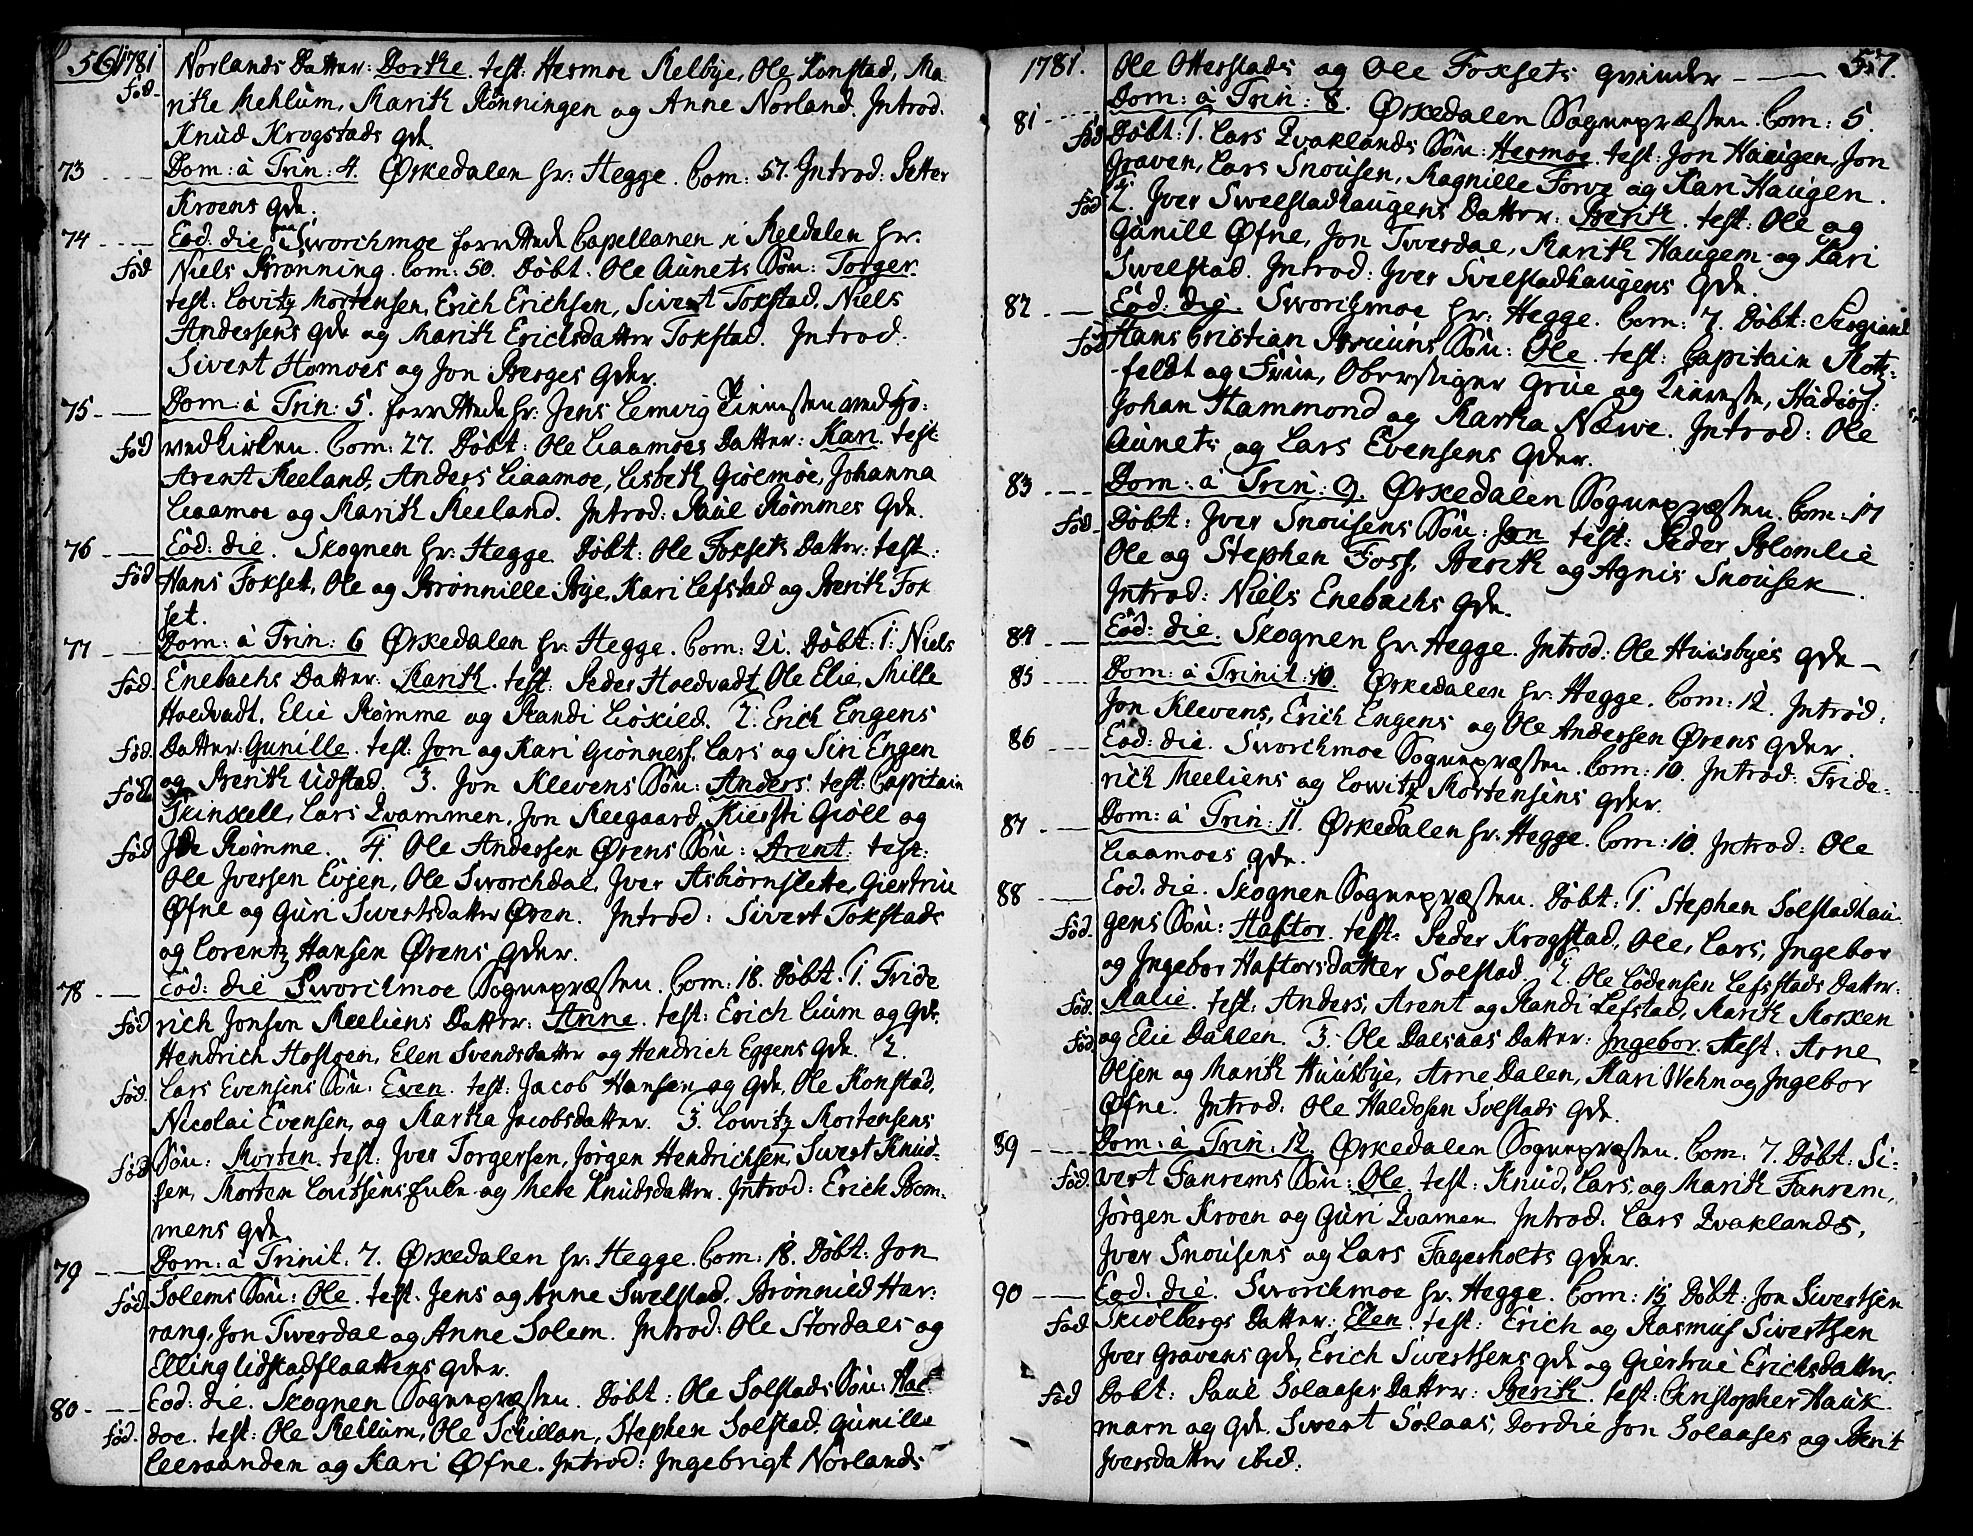 56 1781
Norlands Datter: Dorthe. test: Hermoe Kelbye, Ole Konstad, Ma
Fød.
rithe Mehlum, Marith Rønningen og Anne Norland. Introd.
Knud Krogstads qde.
73 Dom: à Trin: 4. Ørkedalen hr: Hegge. Com: 57. Introd: Petter
Kroens qde.
74 Eod: die Sworchmoe forrettede Capellanen i Meldalen hr:
Fød Niels Brønning. Com: 50. Døbt: Ole Aunets Søn: Torger.
test: Lovitz Mortensen, Erich Erichsen, Sivert Tokstad, Niels
Andersens qde og Marith Erichsdatter Tokstad. Introd:
Sivert Homoes og Jon Berges qder.
75 Dom: à Trin: 5. forrettede hr: Jens Lemvig Tienesten ved Ho:
Fød vedkirken. Com: 27. Døbt: Ole Liaamoes Datter: Kari. test:
Arent Reeland, Anders Liaamoe, Lisbeth Giølmoe, Johanna
Liaamoe og Marith Reeland. Introd: Paul Rømmes qde.
76 Eod: die. Skognen hr: Hegge. Døbt: Ole Foksets Datter: test:
Fød Hans Fokset, Ole og Brønnille Bye, Kari Lefstad og Berith Fok
set.
77 Dom: à Trin: 6 Ørkedalen hr: Hegge. Com: 21. Døbt: 1. Niels
Fød. Enebachs Datter: Marith. test: Peder Hoedvadt, Ole Elie, Mille
Hoedvadt, Elie Rømme og Randi Liøkild. 2. Erich Engens
Fød. Datter: Gunille. test: Jon og Kari Giønness, Lars og Siri Engen
Fød og Berith Udstad. 3. Jon Klevens Søn: Anders. test: Capitain
Trinxell, Lars Qvammen, Jon Reegaard, Kiersti Giøll og
Fød Ide Rømme. 4. Ole Andersen Ørens Søn: Arent: test:
Ole Iversen Evjen, Ole Sworchdal, Iver Asbiørnslette, Giertrue
Øfne og Guri Sivertsdatter Øren. Introd: Sivert Tokstads
og Lorentz Hansen Ørens qder.
78 Eod: die Sworchmoe Sognepræsten. Com: 18. Døbt: 1. Fride
Fød rich Jonsen Meeliens Datter: Anne. test: Erich Lium og qde.
Hendrich Hostoen, Elen Svendsdatter og Hendrich Eggens qde. 2.
Fød. Lars Evensens Søn: Even. test: Jacob Hansen og qde, Ole Konstad,
Nicolai Evensen, og Martha Jacobsdatter. 3. Lowitz Mortensens
Fød. Søn: Morten. test: Iver Torgersen, Jørgen Hendrichsen, Sivert Knud-
sen, Morten og Mete Knudsdatter. Introd: Erich Bom-
mens qde
79 Dom: à Trinit: 7. Ørkedalen hr: Hegge. Com: 18. Døbt: Jon
Fød. Solems Søn: Ole. test. Jens og Anne Swelstad, Brønnild Har:
rang, Jon Twerdal og Anne Solem. Introd: Ole Stordals og
Elling Udstadflaattens qder.
80 Eod: die. Skognen Sognepræsten. Døbt: Ole Solstads Søn: Hal-
Fød. doe. test: Ole Mehlum, Ole Schillan, Stephen Solstad, Gunille
Leeraanden og Kari Øfne. Introd: Ingebrigt Norlands
1781. 57.
Ole Otterstads og Ole Foksets qvinder
81 Dom: à Trin: 8. Ørkedalen Sognepræsten. Com: 5.
Fød Døbt: 1. Lars Qvaklands Søn: Hermoe. test: Jon Haugen, Jon
Graven, Lars Snousen, Magnille Forve og Kari Haugen.
Fød 2. Iver Swelstadhaugens Datter: Berith. test: Ole og
Gunill Øfne, Jon Twerdal, Marith Haugen og Kari
Swelstad. Introd: Iver Svelstadhaugens qde.
82 Eod: die. Sworchmoe hr: Hegge. Com: 7. Døbt:
Fød Hans Cristian Bruuns Søn: Ole. test: Capitain Motz-
feldt og Frue, Oberstiger Grue og Tieneste,
Johan Hammond og Martha Næwe. Introd: Ole
Aunets og Lars Evensens qder.
83 Dom: à Trin: 9. Ørkedalen Sognepræsten. Com: 17
Fød. Døbt: Iver Snousens Søn: Jon test: Peder Blomlie
Ole og Stephen Foss, Berith og Agnis Snousen.
Introd: Niels Enebachs qde.
84 Eod: die. Skognen hr: Hegge. Introd: Ole Huusbyes qde
85 Dom: à Trinit: 10. Ørkedalen hr: Hegge. Com: 12. Introd:
Jon Klevens, Erich Engens og Ole Andersen Ørens qder.
86 Eod: die. Sworchmoe Sognepræsten. Com: 10. Introd: Fride-
rich Meeliens og Lowitz Mortensens qder.
87 Dom: à Trin: 11. Ørkedalen hr: Hegge. Com: 10. Introd: Ole
Liaamoes qde.
88 Eod. die. Skognen Sognepræsten. Døbt: 1. Stephen Solstadhau
Fød. gens Søn: Haftor. test: Peder Krogstad, Ole, Lars, Ingebor
og Ingebor Haftorsdatter Solstad. 2. Ole Lodensen Lefstads Datter:
Fød. Malie. test: Anders, Arent og Randi Lefstad, Marith Morken
Fød og Elie Dahlen. 3. Ole Dalsaas Datter: Ingebor. test: Arne
Olsen og Marith Huusbye, Arne Dalen, Kari Wehn og Ingebor
Øfne. Introd: Ole Haldosen Solstads qde.
89 Dom: à Trin: 12. Ørkedalen Sognepræsten. Com: 7. Døbt: Si-
Fød. vert Fanrems Søn: Ole. test: Knud, Lars, og Marith Fanrem,
Jørgen Kroen og Guri Qvamen. Introd: Lars Qvaklands,
Iver Snousens og Lars Fagerholts qder.
90 Eod: die. Sworchmoe hr: Hegge. Com: 15 Døbt: Jon Sivertsen
Fød Skiølbergs Datter: Elen. test: Erich og Rasmus Sivertsen
Iver Gravens qde, Erich Sivertsens qde og Giertrue Erichsdatter.
Fød Døbt: Paul Solaases Datter: Berith. test: Christopher Hauk
marn og qde. Sivert Solaas, Dordie Jon Solaases og Berit
Iversdatter ibid: